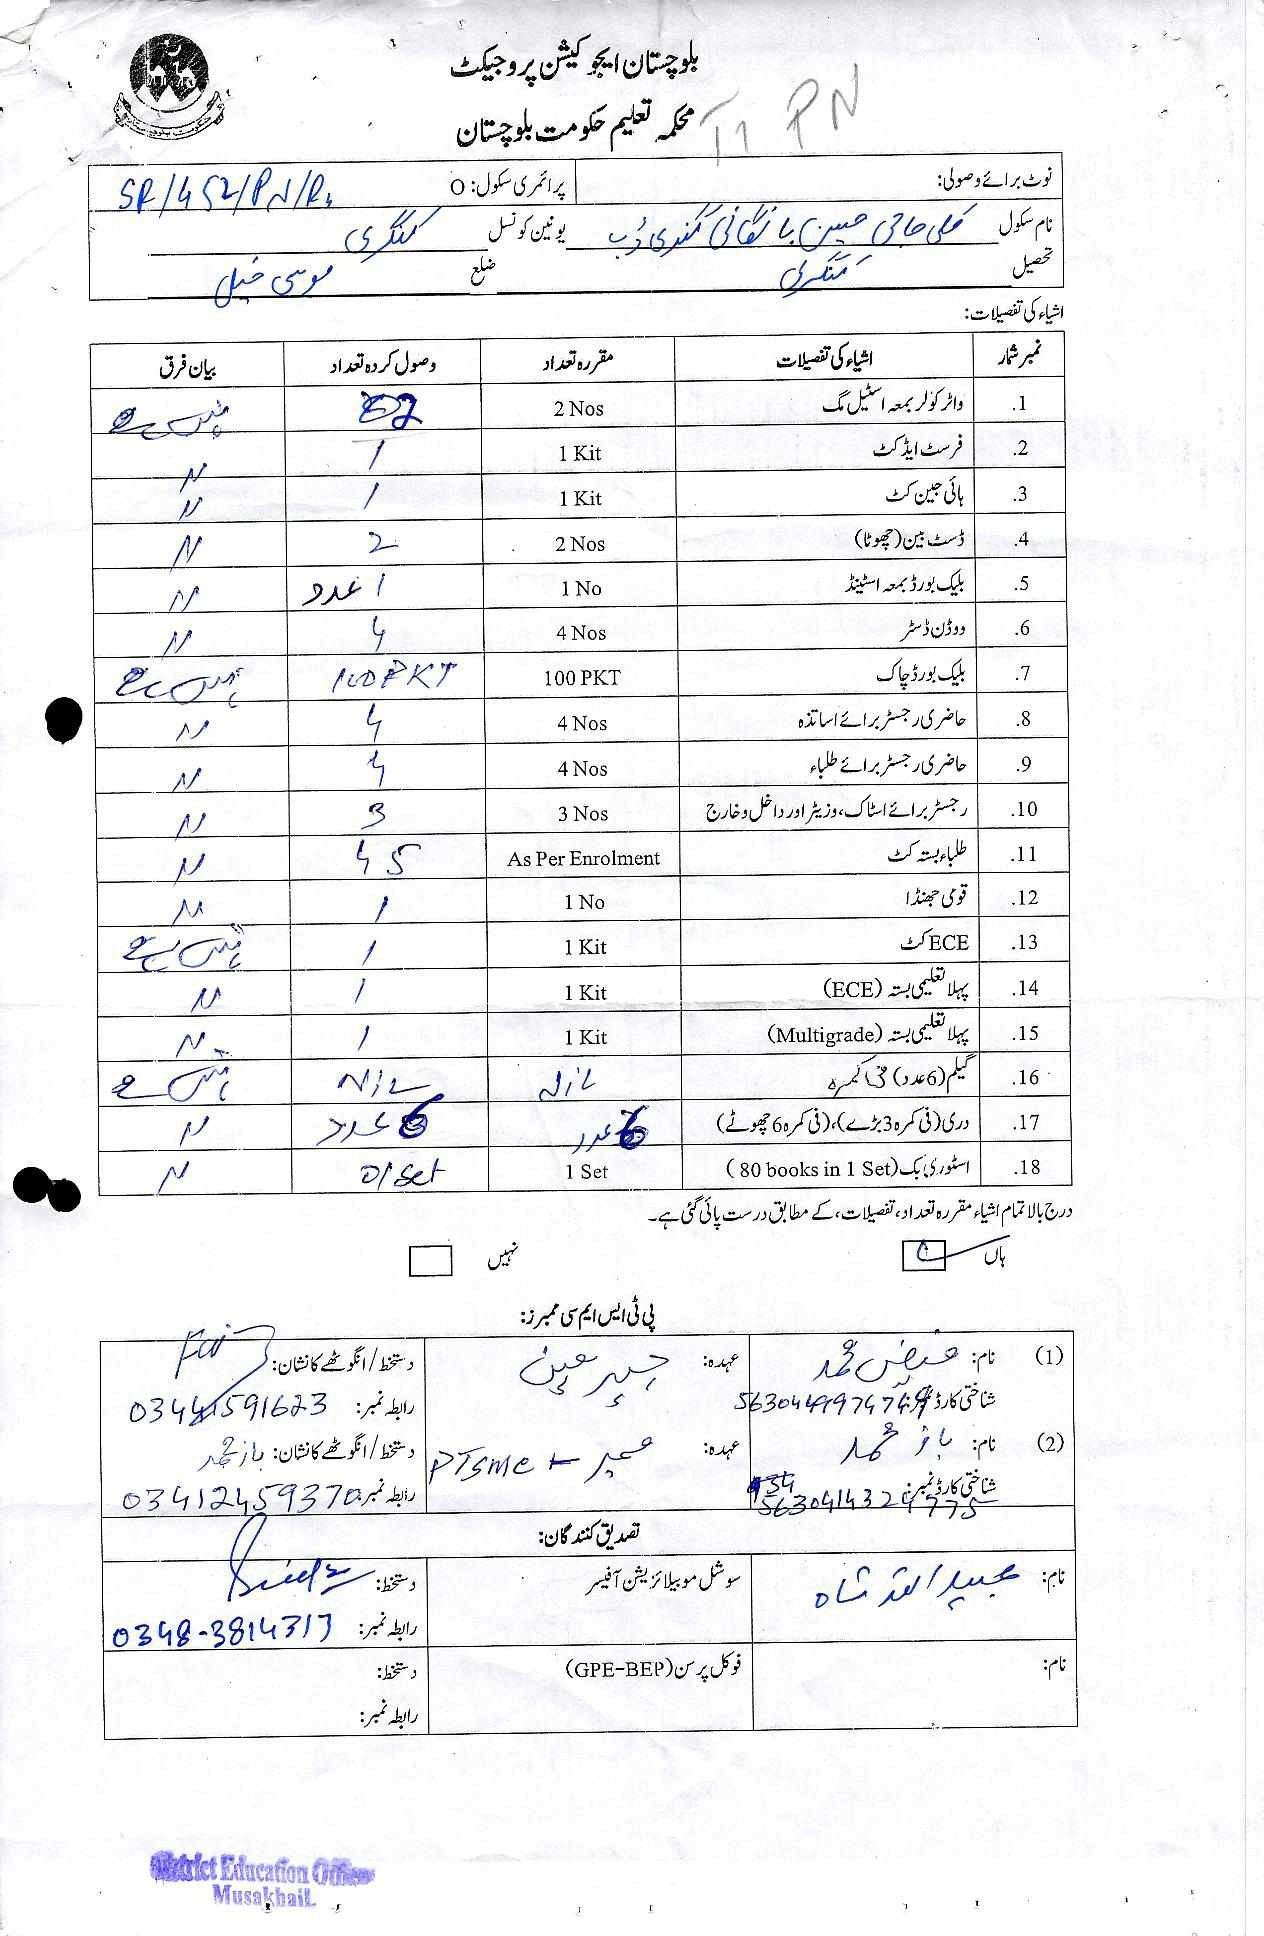 بلوچستان ایجوکیشن پروجیکٹ
محکمہ تعلیم حکومت بلوچستان
T1 PN
نوٹ برائے وصولی: پرائمری سکول: O SR/452/PN/
نام سکول کلی حاجی حسین یونین کونسل کنگری
تحصیل کنگری ضلع موسی خیل
اشیاء کی تفصیلات:
نمبر شمار اشیاء کی تفصیلات مقررہ تعداد وصول کردہ تعداد بیان فرق
1. واٹر کولر بمعہ اسٹیل مگ 2 Nos 02 نہیں ہے
2. فرسٹ ایڈ کٹ 1 Kit 1 〃
3. ہائی جین کٹ 1 Kit 1 〃
4. ڈسٹ بین (چھوٹا) 2 Nos 2 〃
5. بلیک بورڈ بمعہ اسٹینڈ 1 No 1 عدد 〃
6. ووڈن ڈسٹر 4 Nos 4 〃
7. بلیک بورڈ چاک 100 PKT 100 PKT نہیں ہے
8. حاضری رجسٹر برائے اساتذہ 4 Nos 4 〃
9. حاضری رجسٹر برائے طلباء 4 Nos 4 〃
10. رجسٹر برائے اسٹاک، وزیٹر اور داخل و خارج 3 Nos 3 〃
11. طلباء بستہ کٹ As Per Enrolment 45 〃
12. قومی جھنڈا 1 No 1 〃
13. ECE کٹ 1 Kit 1 نہیں ہے
14. پہلا تعلیمی بستہ (ECE) 1 Kit 1 〃
15. پہلا تعلیمی بستہ (Multigrade) 1 Kit 1 〃
16. گیلم (6 عدد) فی کمرہ Nil Nil نہیں ہے
17. دری (فی کمرہ 3 بڑے)، (فی کمرہ 6 چھوٹے) 6 عدد 6 عدد 〃
18. اسٹوری بک (80 books in 1 Set) 1 Set 01 set 〃
درج بالا تمام اشیاء مقررہ تعداد، تفصیلات، کے مطابق درست پائی گئی ہے۔
ہاں نہیں
پی ٹی ایس ایم سی ممبرز:
(1) نام: فیض محمد عہدہ: چیرمین دستخط / انگوٹھے کا نشان:
شناختی کارڈ نمبر: رابطہ نمبر: 03441591623
(2) نام: باز محمد عہدہ: PTSMC ممبر دستخط / انگوٹھے کا نشان: باز محمد
شناختی کارڈ نمبر: رابطہ نمبر: 03412459370
تصدیق کنندگان:
نام: عبید اللہ شاہ سوشل موبیلائزیشن آفیسر دستخط:
رابطہ نمبر: 0348-3814317
نام: فوکل پرسن (GPE-BEP) دستخط:
رابطہ نمبر:
District Education Officer
Musakhail